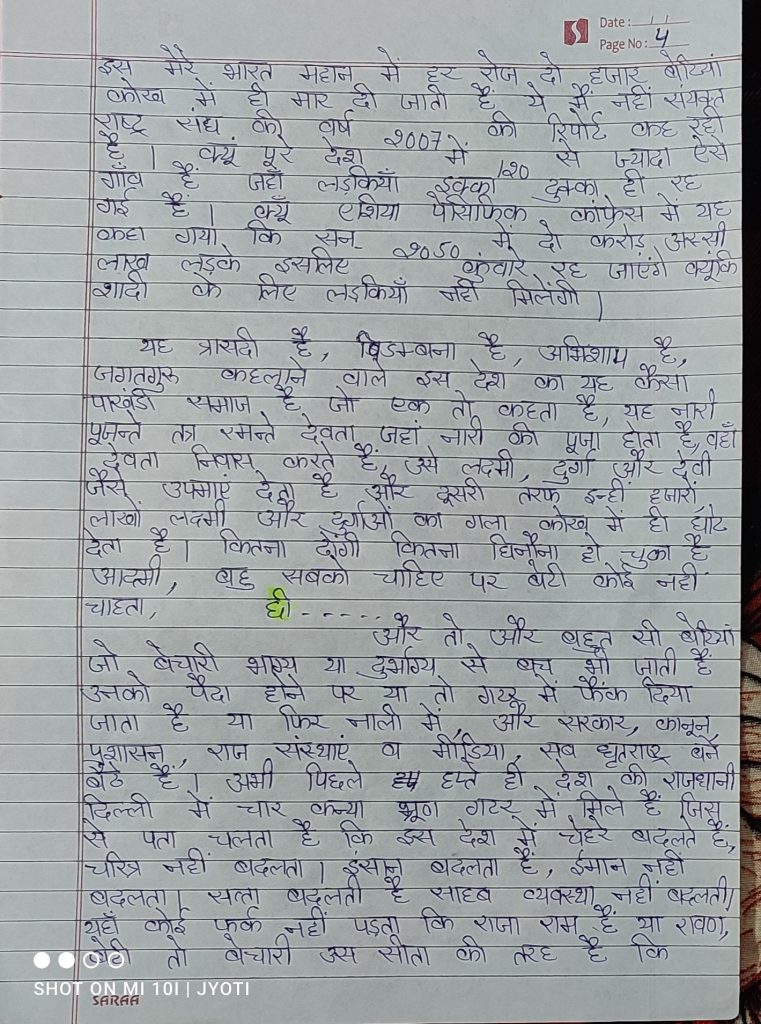 Date :
Page No : 4
इस मेरे भारत महान में हर रोज दो हजार बेटियां
कोख में ही मार दी जाती हैं ये मैं नहीं संयक्त
राष्ट्र संघ की वर्ष 2007 की रिपोर्ट कह रही
है । क्यूं पूरे देश में 120 से ज्यादा ऐसे
गाँव हैं जहाँ लड़कियाँ इक्का दुक्का ही रह
गई हैं । क्यूँ एशिया पैसिफिक कांफ्रेस में यह
कहा गया कि सन् 2050 में दो करोड़ अस्सी
लाख लड़के इसलिए कुंवारे रह जाएंगे क्यूंकि
शादी के लिए लडकियाँ नहीं मिलेंगी ।
यह त्रासदी है, विडम्बना है, अभिशाप है,
जगतगुरु कहलाने वाले इस देश का यह कैसा
पाखंडी समाज है जो एक तो कहता है, यह नारी
पूजन्ते तत्रा रमन्ते देवता जहां नारी की पूजा होता है, वहाँ
देवता निवास करते हैं, उसे लक्ष्मी, दुर्गा और देवी
जैसे उपमाएं देता है और दूसरी तरफ इन्हीं हजारों,
लाखों लक्ष्मी और दुर्गाओं का गला कोख में ही घोट
देता है । कितना ढोंगी कितना घिनौना हो चुका है
आदमी, बहु सबको चाहिए पर बेटी कोई नहीं
चाहता, छी - - - - - -
और तो और बहुत सी बेटियां
जो बेचारी भाग्य या दुर्भाग्य से बच भी जाती हैं
उनको पैदा होने पर या तो गटर में फैंक दिया
जाता है या फिर नाली में, और सरकार, कानून,
प्रशासन, राज संस्थाएं व मीडिया, सब धृतराष्ट्र बने
बैठे हैं । अभी पिछले हफ्ते ही देश की राजधानी
दिल्ली में चार कन्या भ्रूण गटर में मिले हैं जिस
से पता चलता है कि इस देश में चेहरे बदलते हैं,
चरित्र नहीं बदलता । इंसान बदलता है, ईमान नहीं
बदलता । सत्ता बदलती है साहब व्यवस्था नहीं बदलती ।
यहाँ कोई फर्क नहीं पड़ता कि राजा राम हैं या रावण,
बेटी तो बेचारी उस सीता की तरह है कि
SHOT ON MI 10I | JYOTI
SARAA